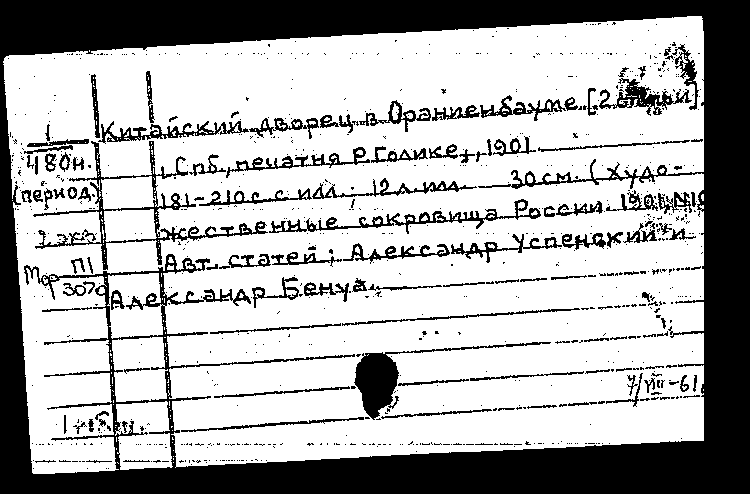 1
480н.
(период.)
2 экз
Мор П1
3070
Китайский дворец в Ораниенбауме [2 статьи].
Спб., печатня Р. Голике, 1901.
181-210 с. с илл.; 12 л. илл. 30 см. (Худо-
жественные сокровища России. 1901, №10
Авт. статей: Александр Успенский и
Александр Бенуа.
7/VIII-61